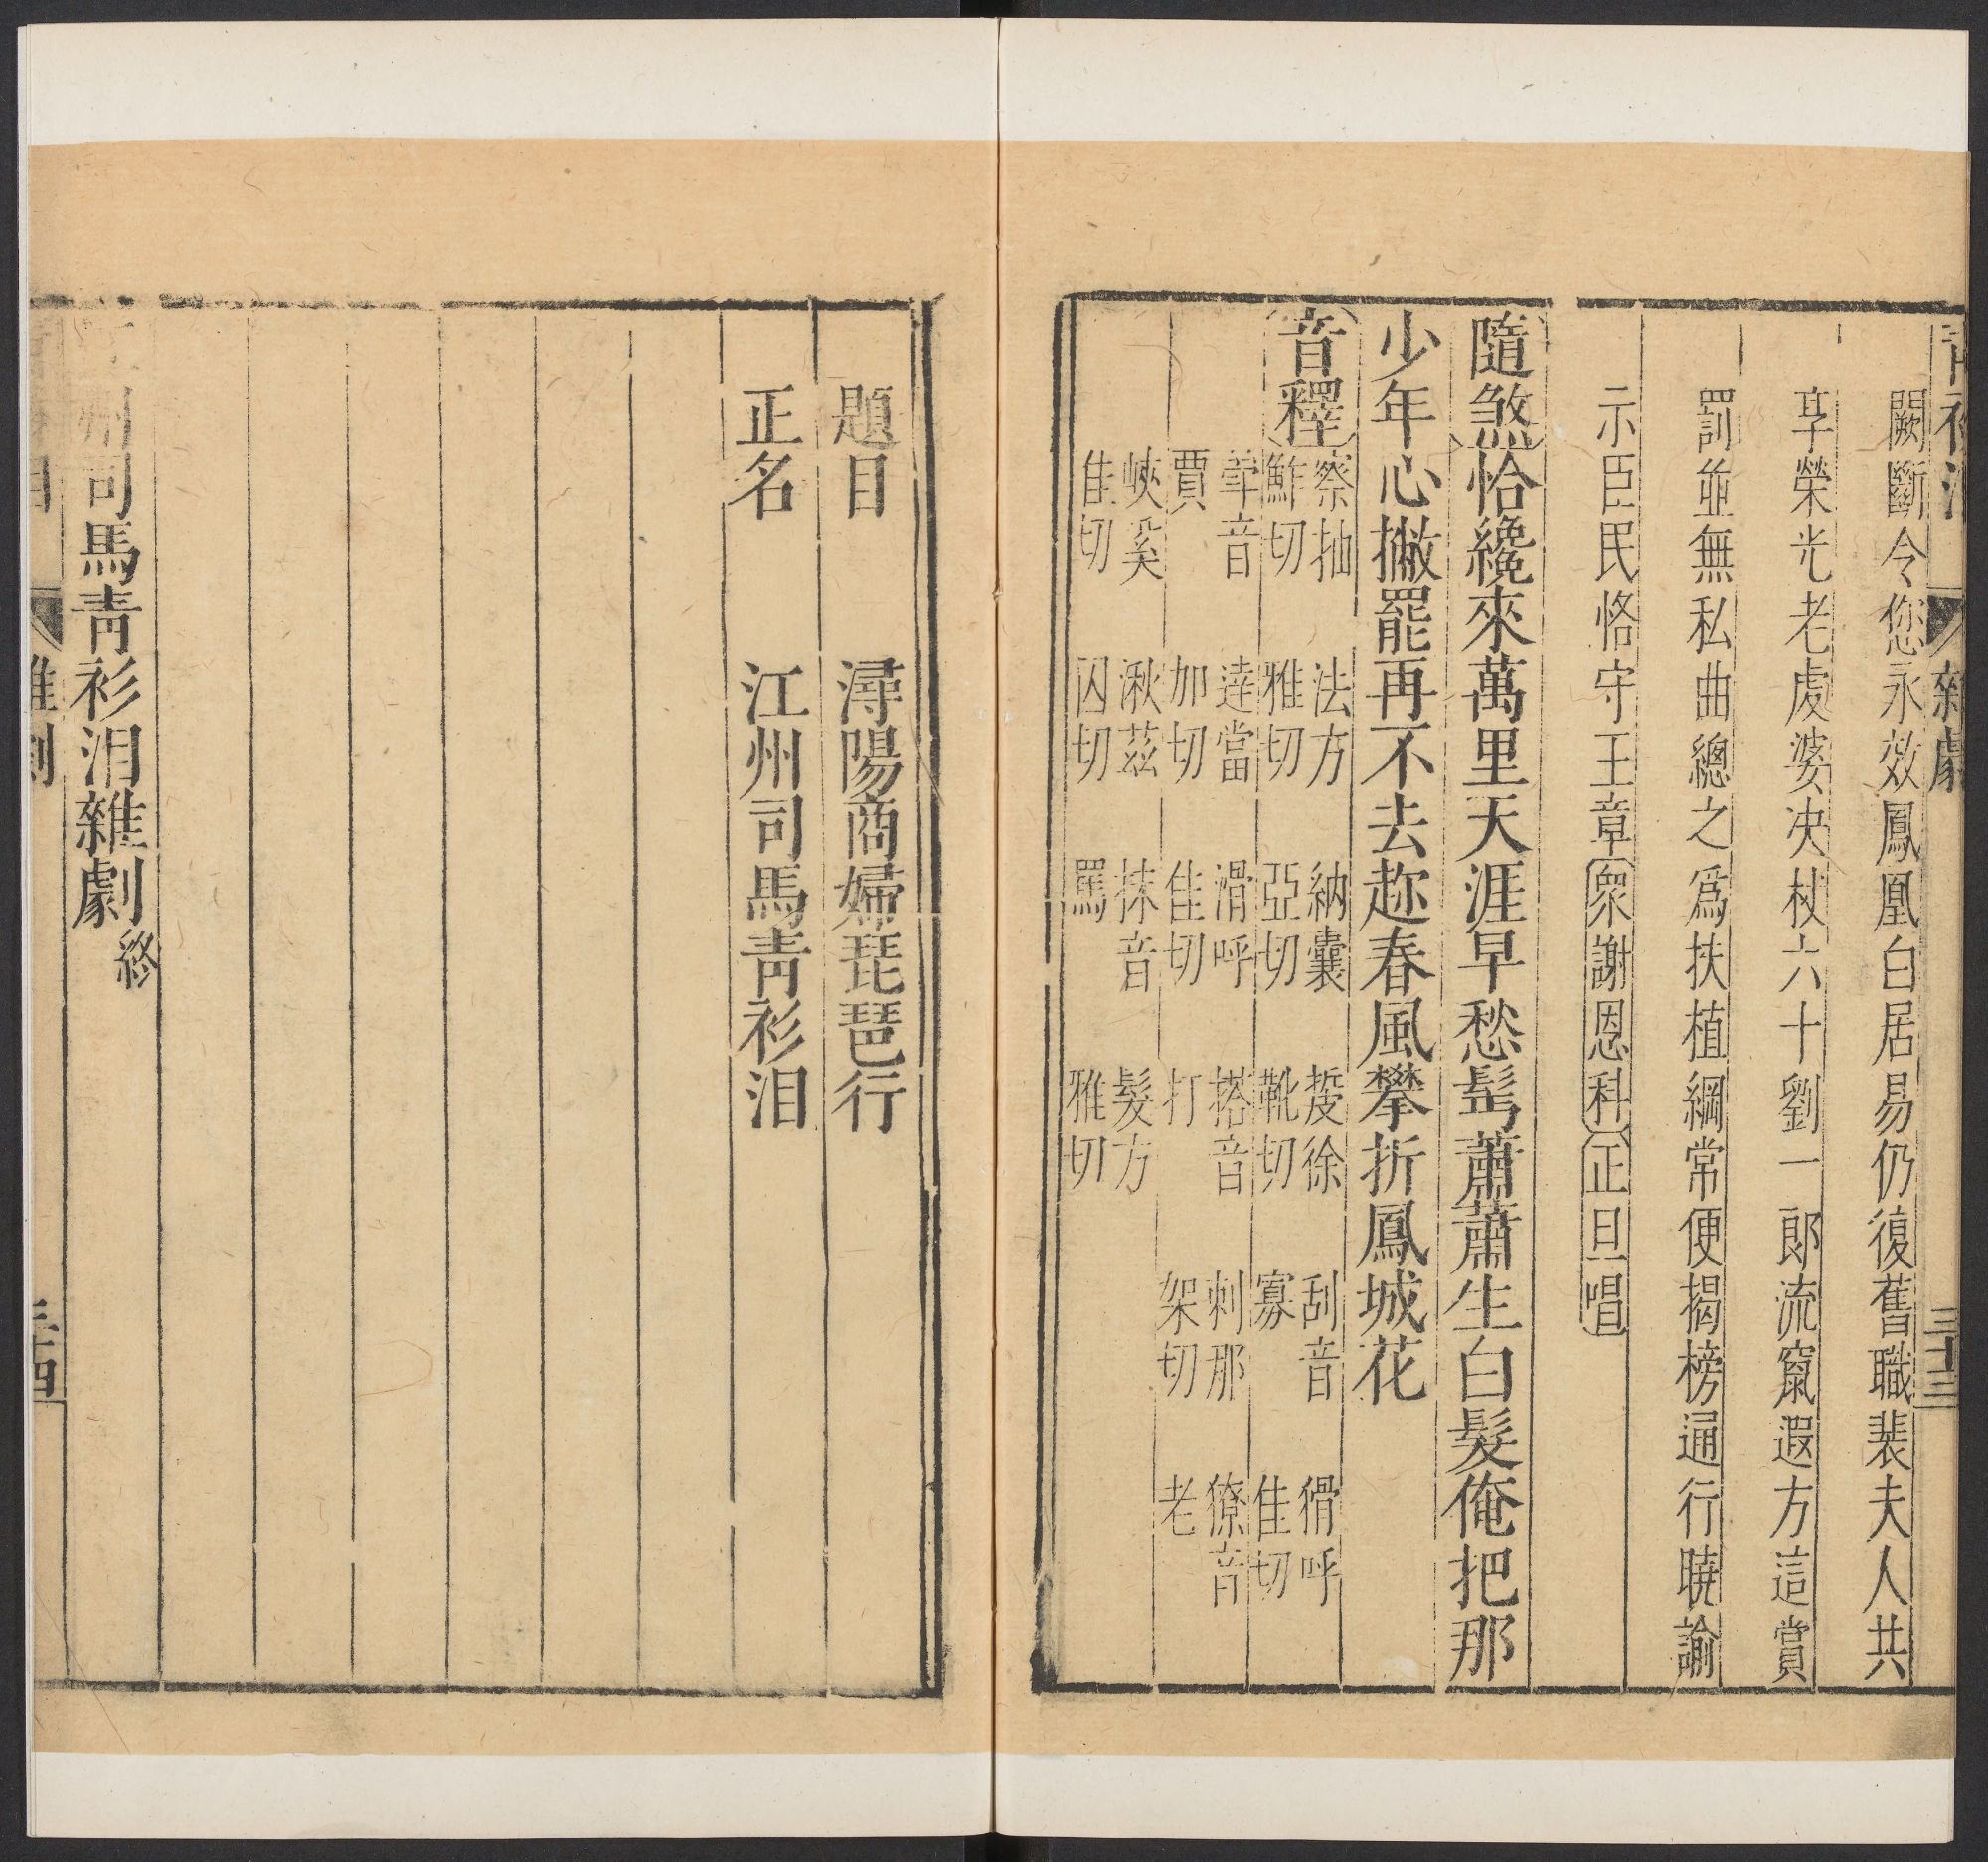 雜劇 三十三
闕斷令您永效鳳凰白居易仍復舊職裴夫人共
享榮光老虔婆決杖六十劉一郎流竄遐方這賞
罰並無私曲總之爲扶植綱常便揭榜通行曉諭
示臣民恪守王章衆謝恩科正旦唱
隨煞恰纔來萬里天涯早愁髩蕭蕭生白髮俺把那
少年心撇罷再不去趂春風攀折鳳城花
音釋
察抽鮓切 法方雅切 納囊亞切 踅徐靴切 刮音寡 猾呼佳切
斝音賈 達當加切 滑呼佳切 搭音打 刺那架切 獠音老
峽奚佳切 湫茲囚切 抹音罵 髮方雅切
題目 潯陽商婦琵琶行
正名 江州司馬青衫淚
州司馬青衫淚雜劇終